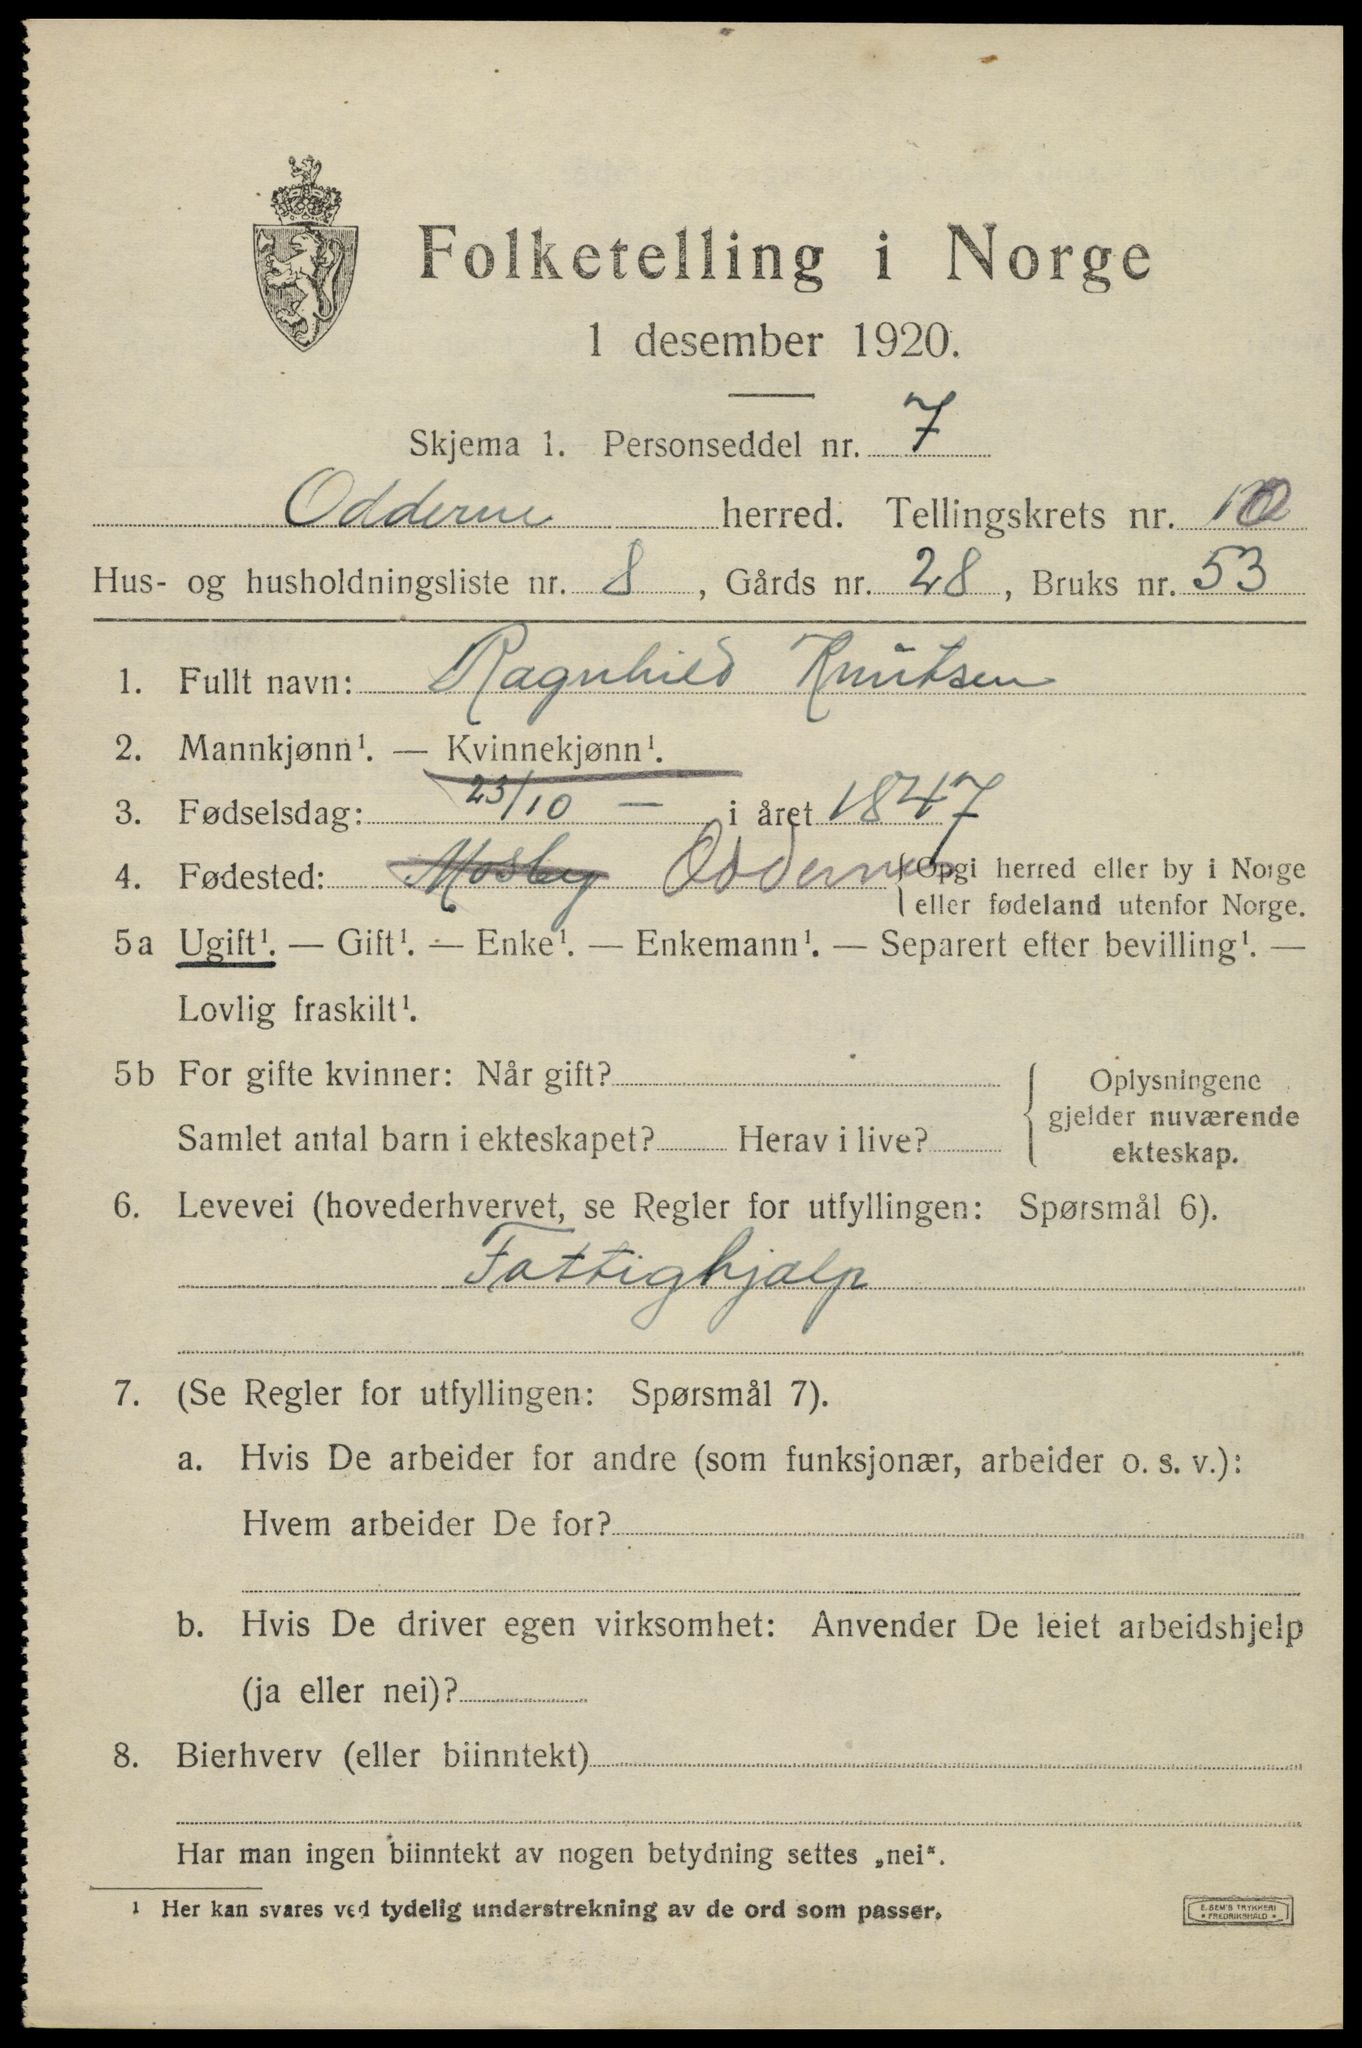 Folketelling i Norge
1 desember 1920.
Skjema 1. Personseddel nr. 7
Odderne herred. Tellingskrets nr. 10
Hus- og husholdningsliste nr. 8, Gårds nr. 28, Bruks nr. 53
1. Fullt navn: Ragnhild Knutsen
2. Mannkjønn¹. — Kvinnekjønn¹.
3. Fødselsdag: 23/10 — i året 1847
4. Fødested: Mosby Oddernes {Opgi herred eller by i Norge
eller fødeland utenfor Norge.
5a Ugift¹. — Gift¹. — Enke¹. — Enkemann¹. — Separert efter bevilling¹. —
Lovlig fraskilt¹.
5b For gifte kvinner: Når gift?
Samlet antal barn i ekteskapet? Herav i live?
Oplysningene
gjelder nuværende
ekteskap.
6. Levevei (hovederhvervet, se Regler for utfyllingen: Spørsmål 6).
Fattighjalp
7. (Se Regler for utfyllingen: Spørsmål 7).
a. Hvis De arbeider for andre (som funksjonær, arbeider o. s. v.):
Hvem arbeider De for?
b. Hvis De driver egen virksomhet: Anvender De leiet arbeidshjelp
(ja eller nei)?
8. Bierhverv (eller biinntekt)
Har man ingen biinntekt av nogen betydning settes „nei".
¹ Her kan svares ved tydelig understrekning av de ord som passer.
E. SEM'S TRYKKERI
* FREDRIKSHALD *